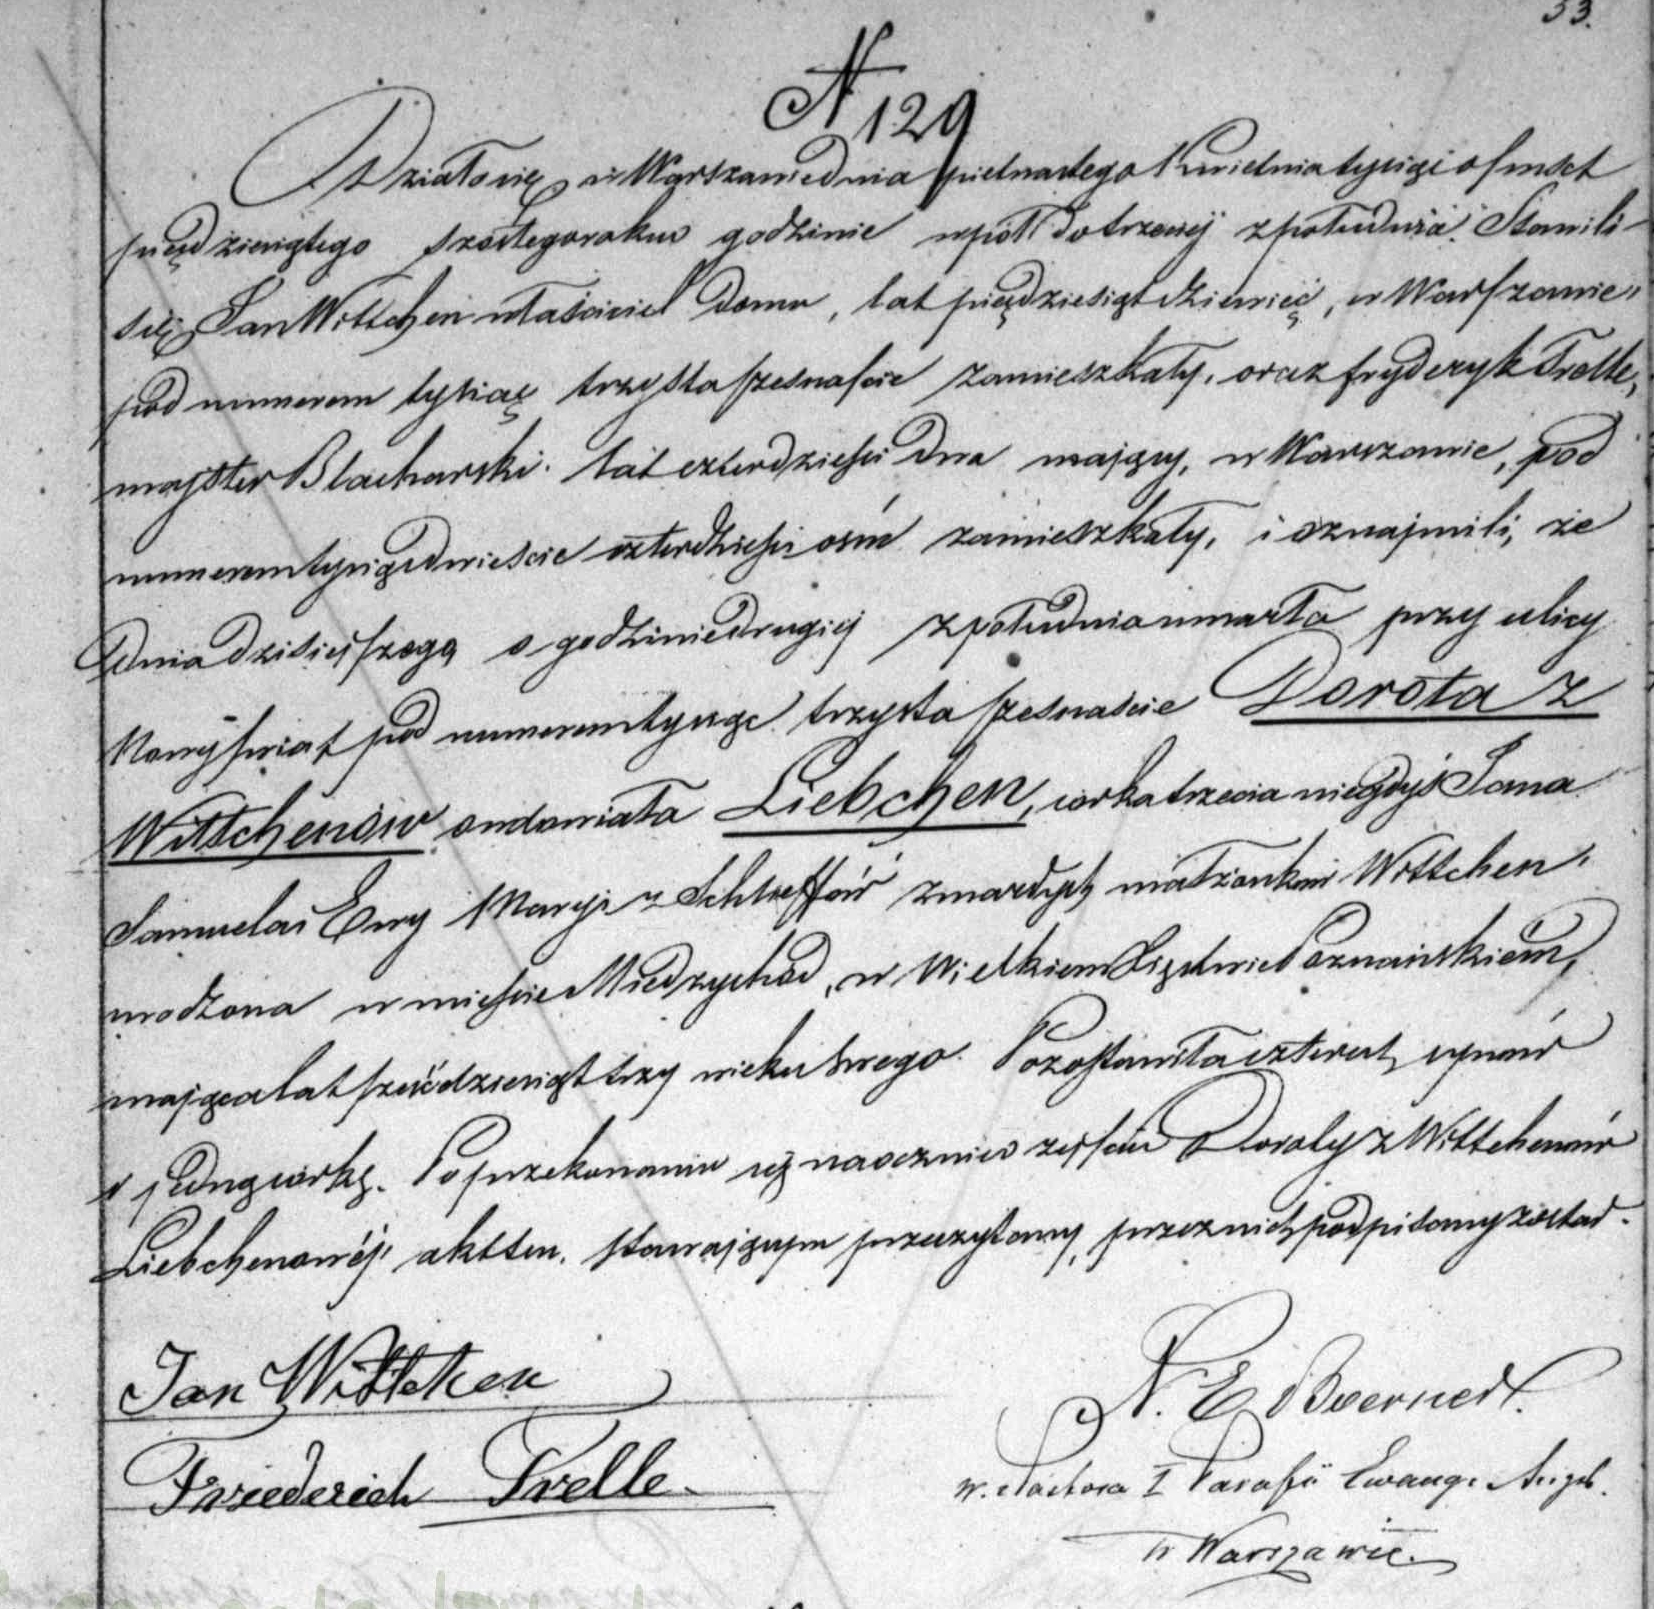 53.
N 129
Działo się w Warszawie dnia piętnastego Kwietnia tysiąc ośmset
pięćdziesiątego szóstego roku o godzinie wpół do trzeciej z południa. Stawili
się, Jan Wittchen właściciel domu, lat pięćdziesiąt dziewięć, w Warszawie,
pod numerem tysiąc trzysta szesnaście zamieszkały, oraz Fryderyk Trelle,
majster Blacharski. lat czterdzieści dwa mający, w Warszawie, pod
numerem tysiąc dwieście czterdzieści ośm zamieszkały, i oznajmili, że
dnia dzisiejszego o godzinie drugiej z południa umarła przy ulicy
Nowy świat pod numerem tysiąc trzysta szesnaście Dorota z
Wittchenów owdowiała Liebchen, córka trzecia niegdyś Jana
Samuela i Ewy Maryi z zmarłych małżonków Wittchen,
urodzona w mieście Miedzychód, w Wielkiem Xięstwie Poznańskiem,
mająca lat sześćdziesiąt trzy wieku swego. Pozostawiła czterech synów
i jedną córkę. Po przekonaniu się naocznie o zejściu Doroty z Wittchenów
Liebchenowéj, akt ten. stawającym przeczytany, przez nich podpisany został.
Jan Wittchen
Friederich Trelle.
w. Pastora I Parafii Ewang. Augsb.
w Warszawie.